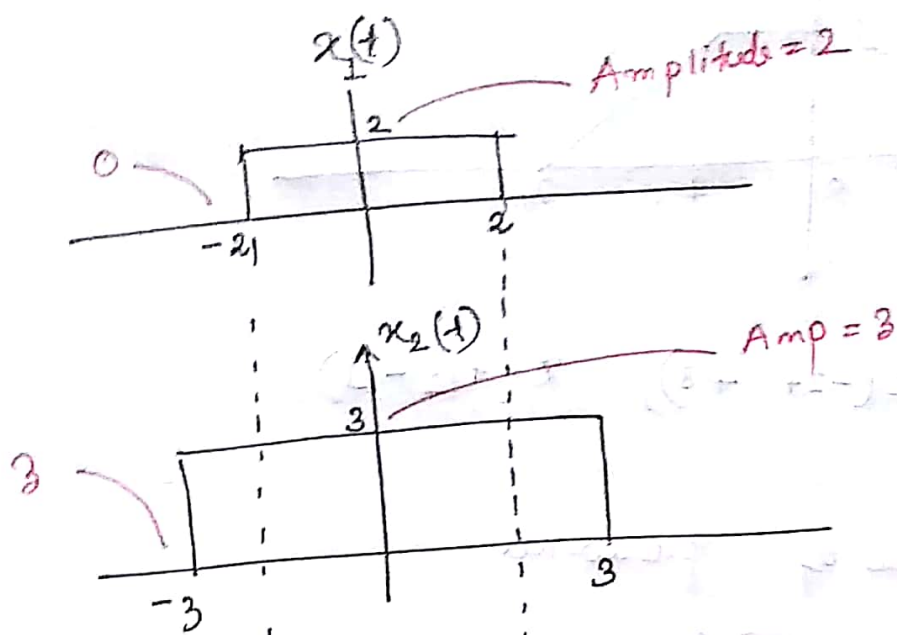 x₁(t)
Amplitude = 2
2
0
-2
2
x₂(t)
Amp = 3
3
3
-3
3